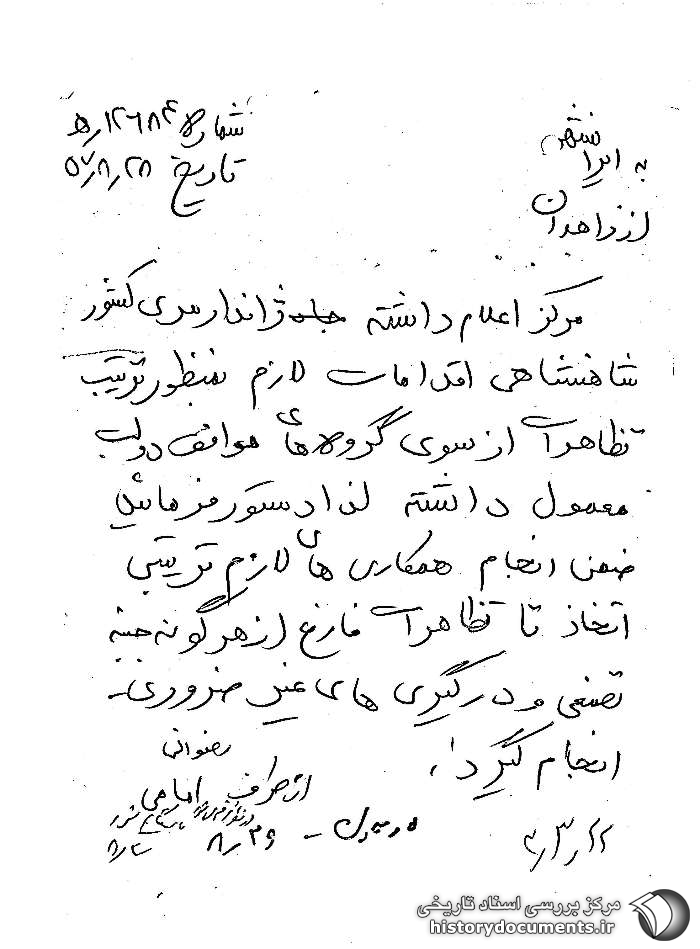 شماره ۱۲۶۸۴ر۵
تاریخ ۲۸ر۸ر۵۷
به ایرانشهر
از زاهدان
مرکز اعلام داشته ژاندارمری کشور
شاهنشاهی اقدامات لازم بمنظور ترتیب
تظاهرات از سوی گروه های موافق دولت
معمول داشته لذا دستور فرمائید
ضمن انجام همکاری های لازم ترتیبی
اتخاذ تا تظاهرات فارغ از هرگونه جنبه
تصنعی و درگیری های غیر ضروری
انجام گیرد
رضوانی
از طرف امامی
مرکز بررسی اسناد تاریخی
historydocuments.ir